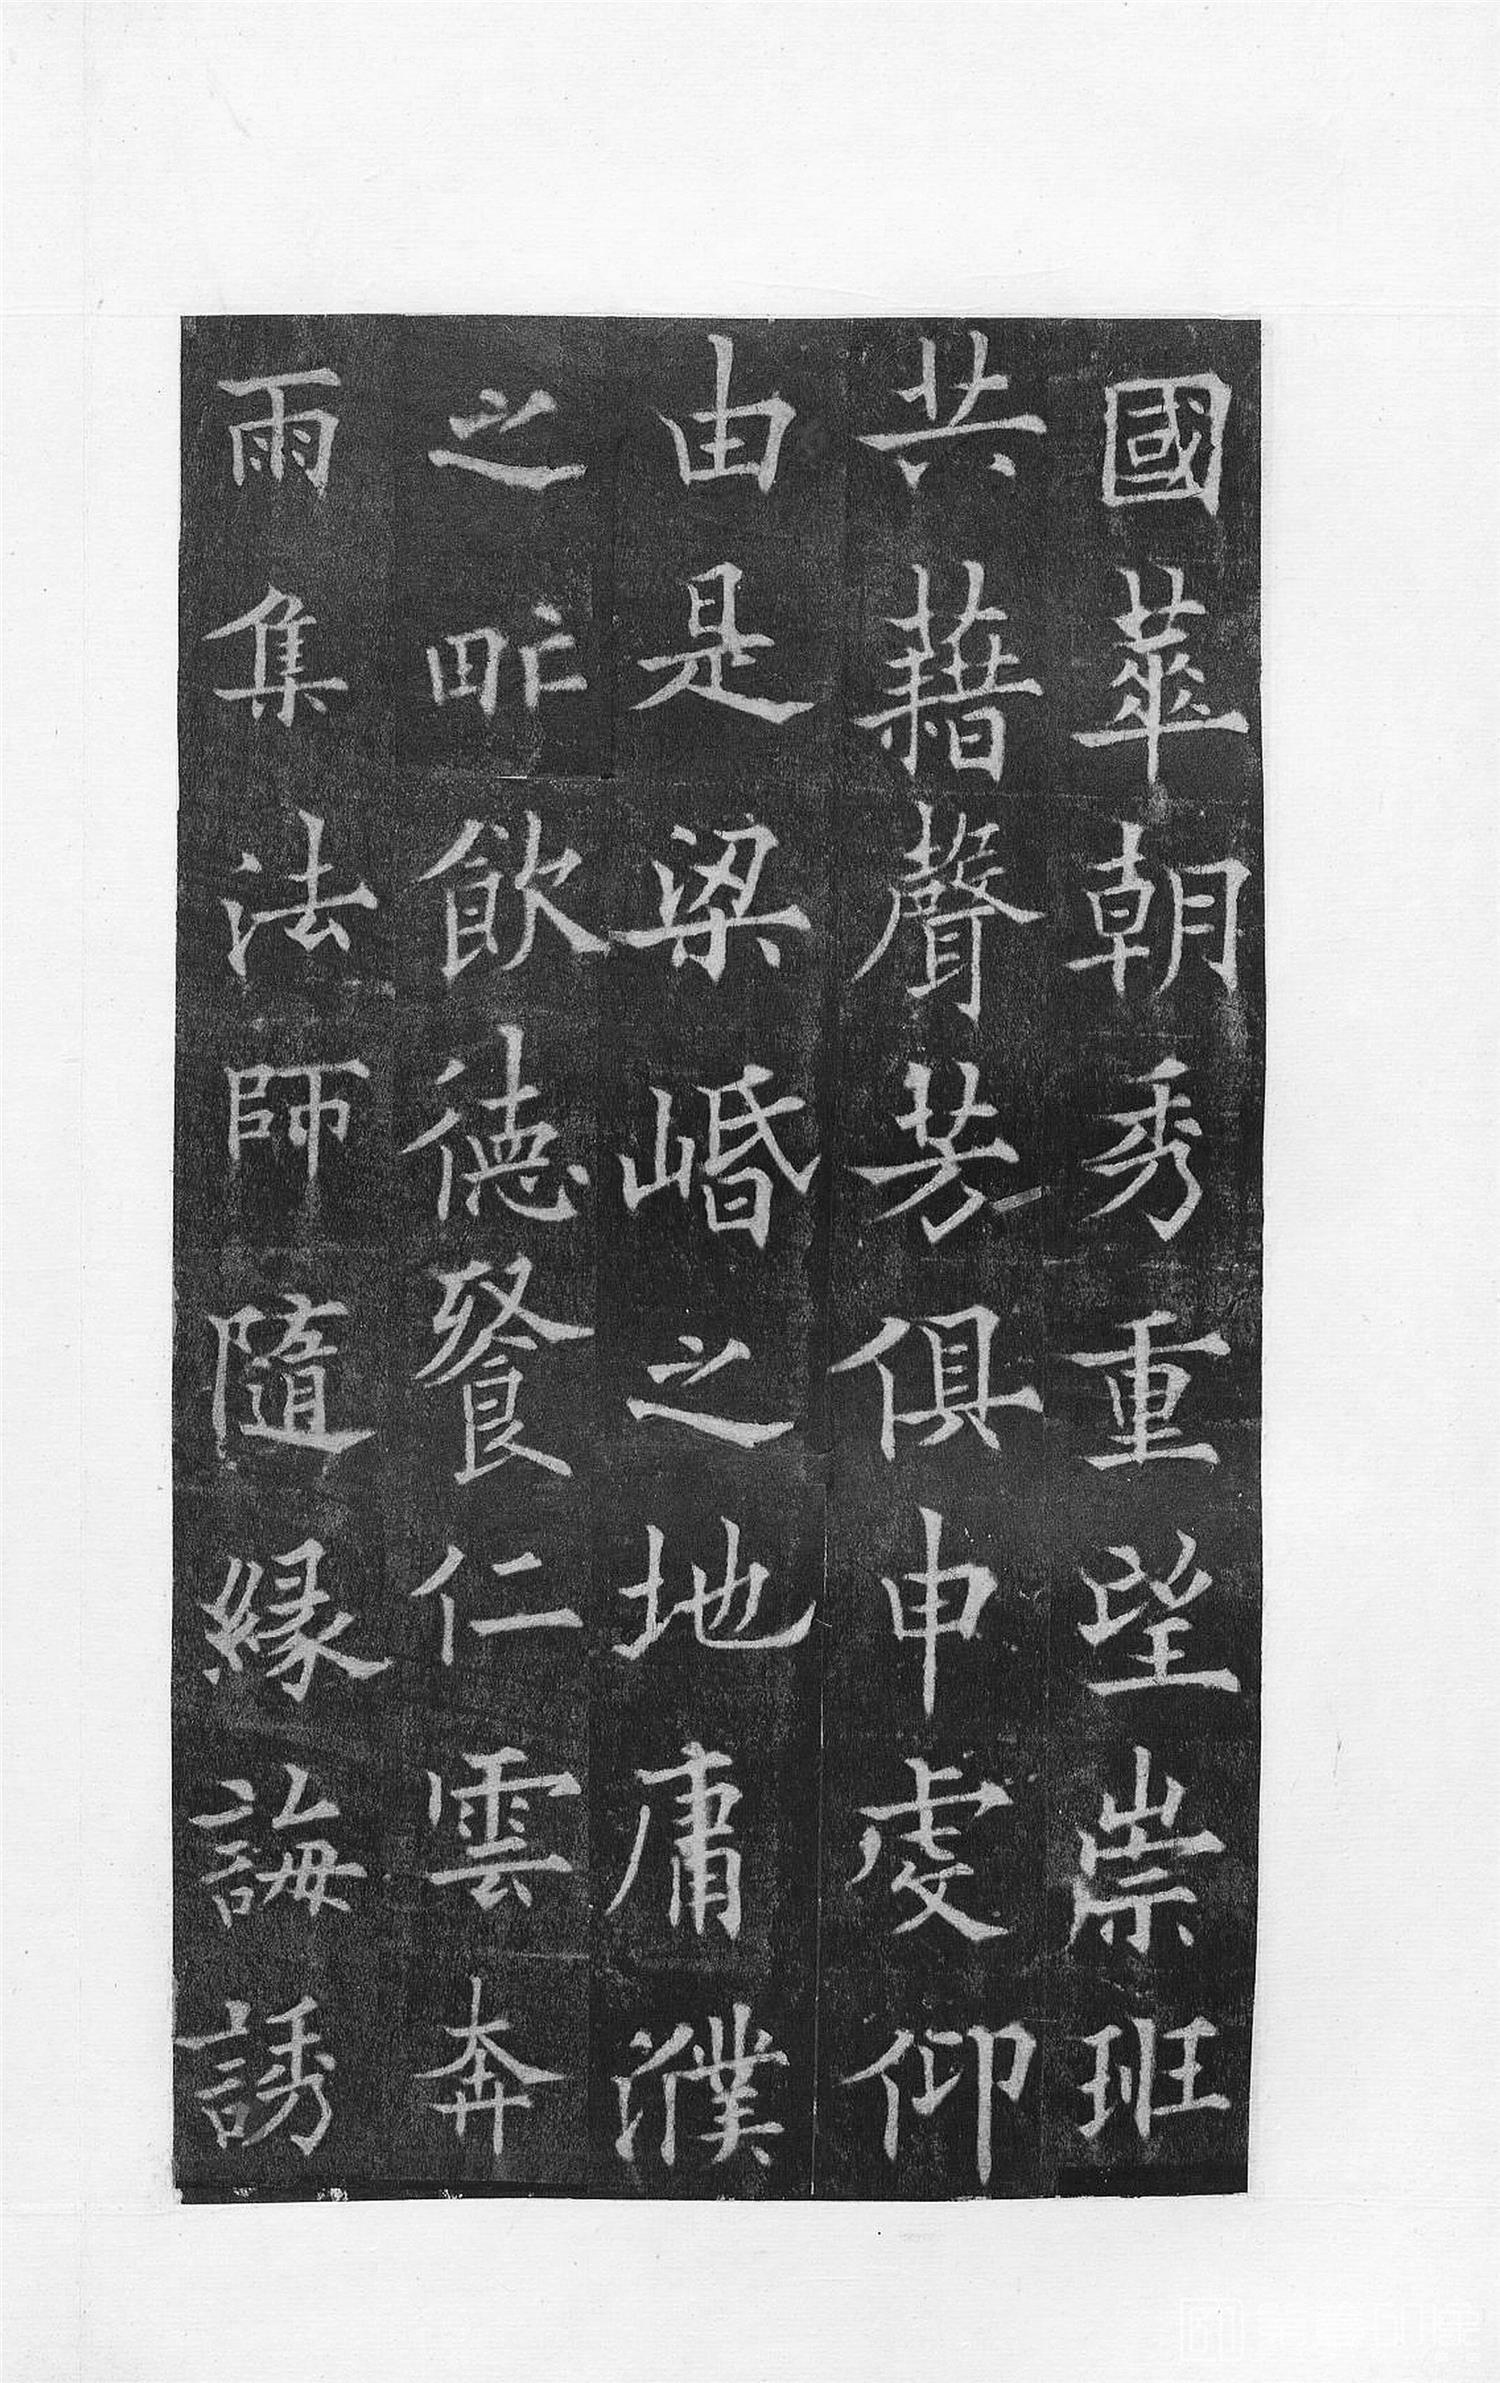 國華朝秀重望崇班
共藉聲芳俱申虔仰
由是梁崏之地庸濮
之甿飲德飡仁雲奔
雨集法師隨緣誨誘